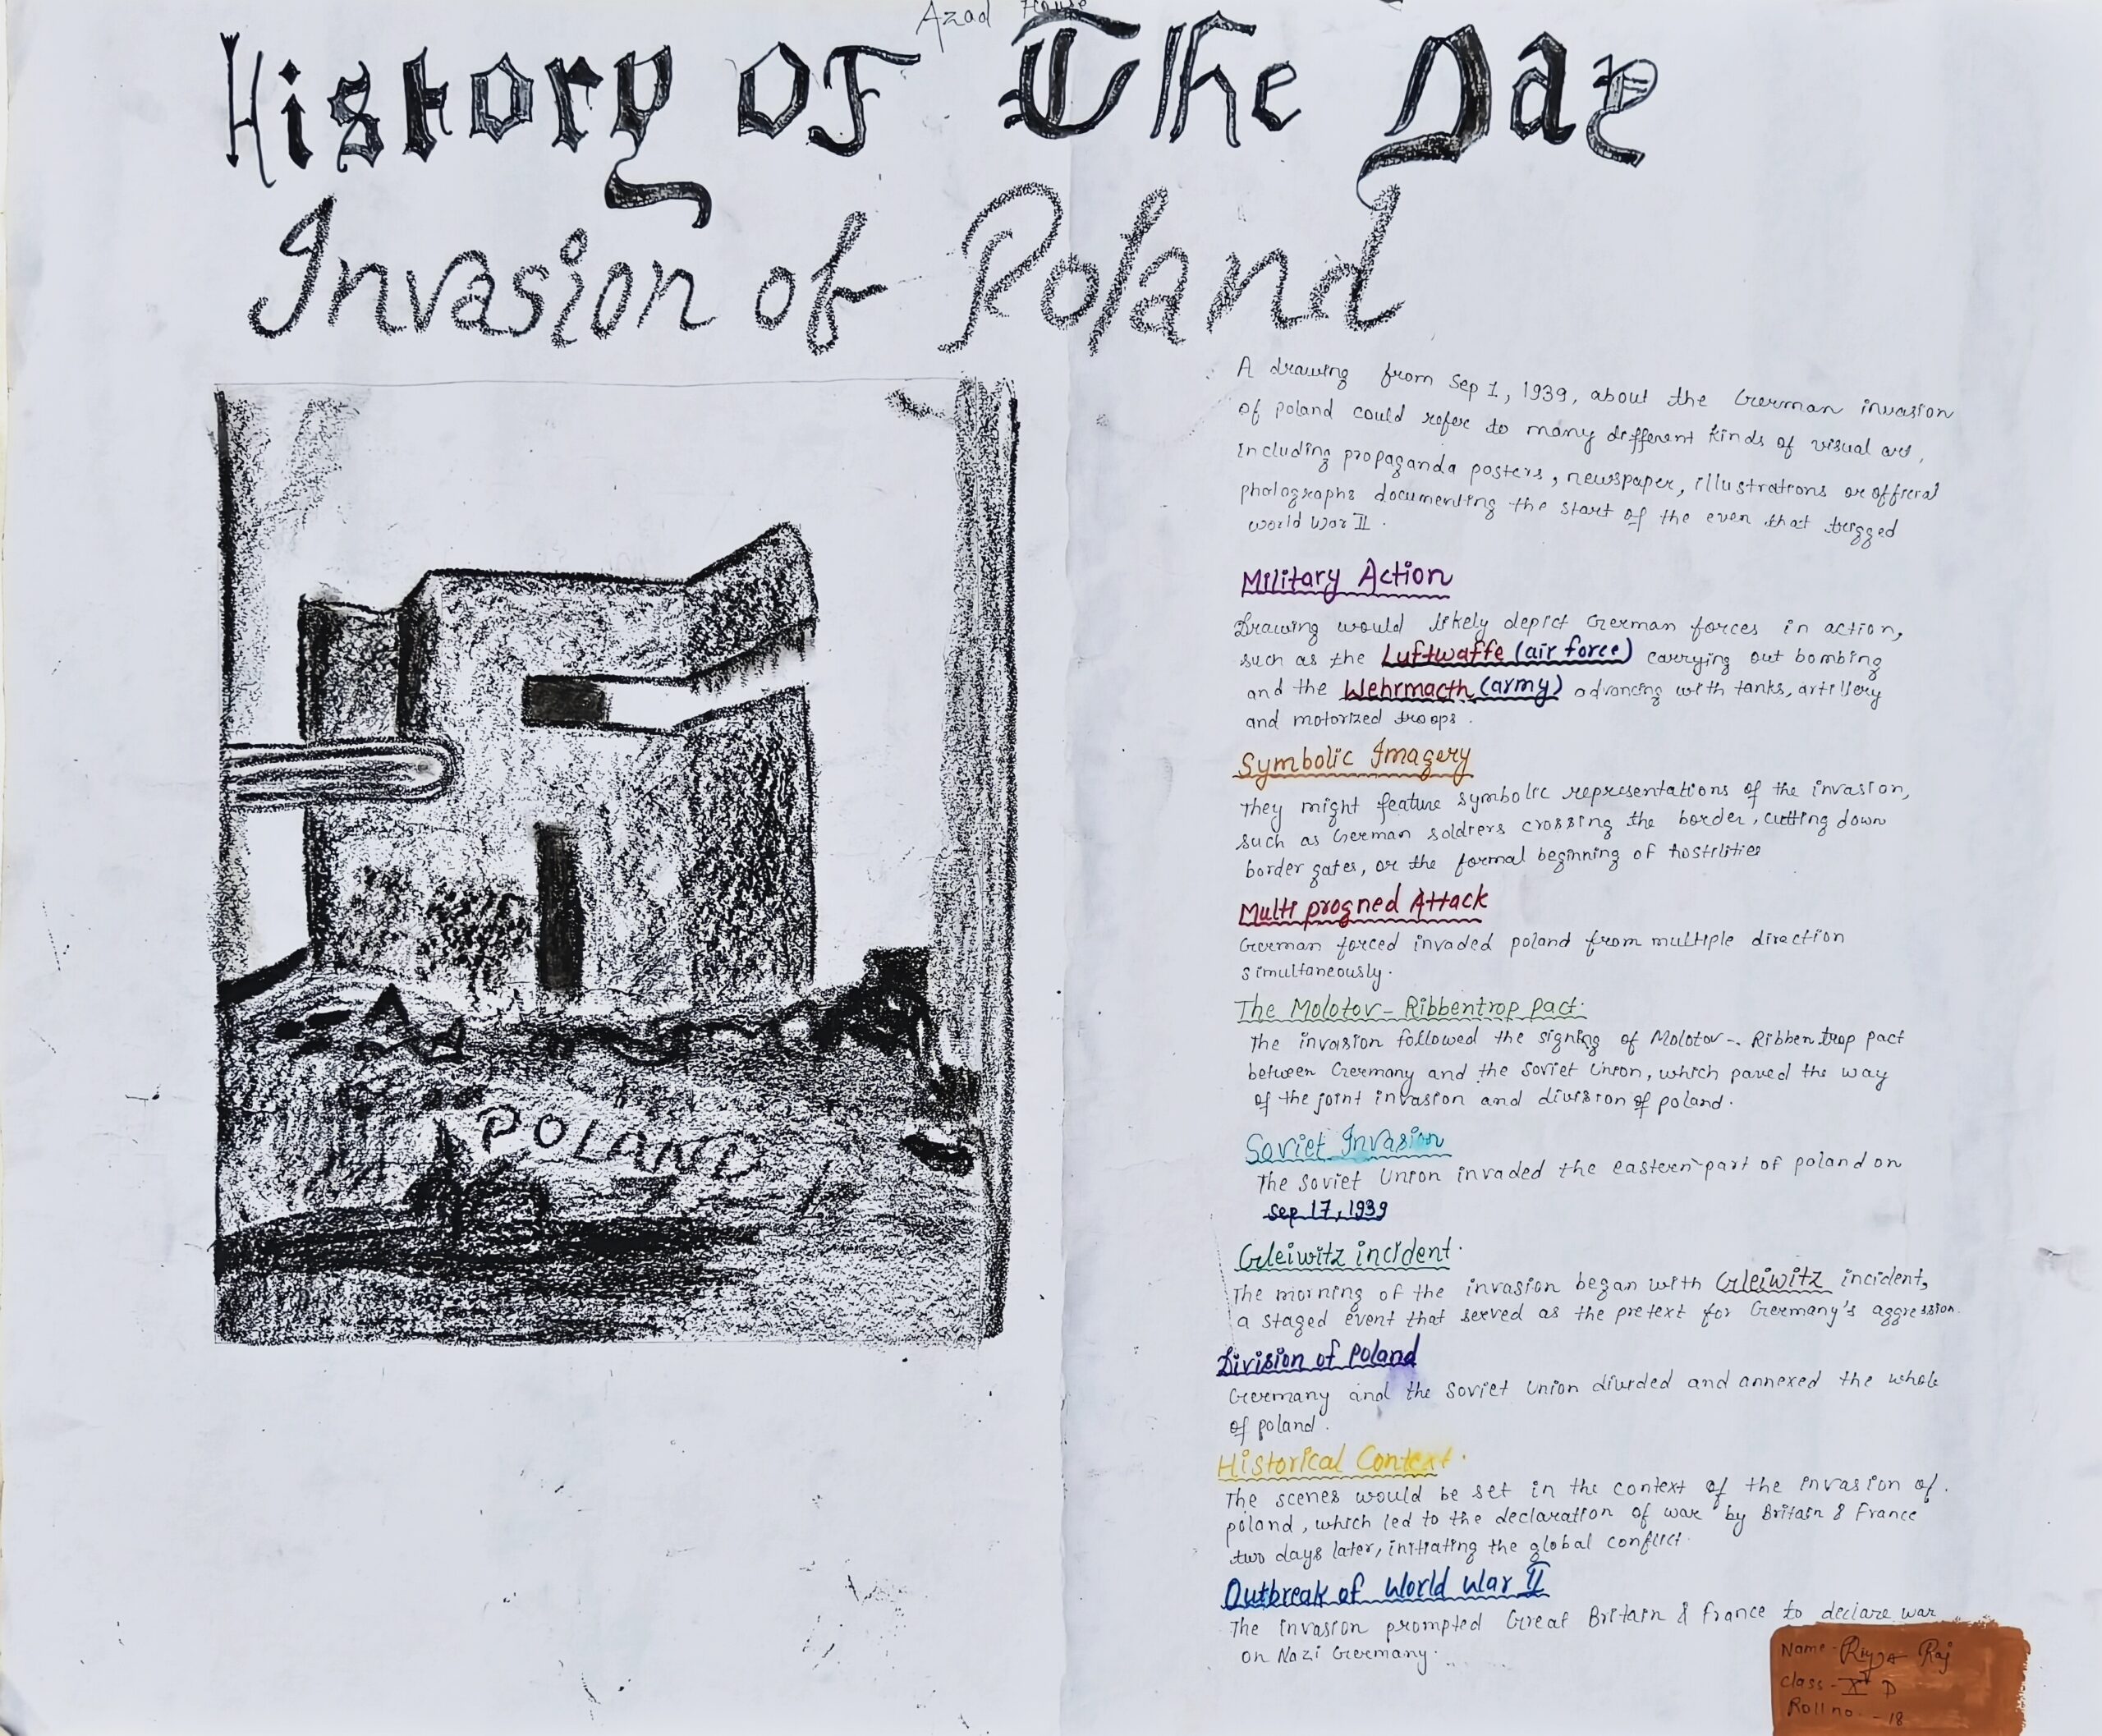 Azad House
History of The Day
Invasion of Poland
POLAND
A drawing from Sep 1, 1939, about the German invasion
of poland could refer to many different kinds of visual art,
Including propaganda posters, newspaper, illustrations or official
photographs documenting the start of the even that trigged
world war II.
Military Action
Drawing would likely depict German forces in action,
such as the Luftwaffe (air force) carrying out bombing
and the Wehrmacth (army) advancing with tanks, artillery
and motorized troops.
Symbolic Imagery
They might feature symbolic representations of the invasion,
such as German soldiers crossing the border, cutting down
border gates, or the formal beginning of hostilities
Multi progned Attack
German forced invaded poland from multiple direction
simultaneously.
The Molotov - Ribbentrop pact.
The invasion followed the signing of Molotov - Ribbentrop pact
between Germany and the Soviet Union, which paved the way
of the joint invasion and division of poland.
Soviet Invasion
The Soviet Union invaded the eastern part of poland on
Sep 17, 1939
Gleiwitz incident.
The morning of the invasion began with Gleiwitz incident,
a staged event that served as the pretext for Germany's aggression.
Division of Poland
Germany and the Soviet Union divided and annexed the whole
of poland.
Historical Context.
The scenes would be set in the context of the invasion of.
poland, which led to the declaration of war by Britain & France
two days later, initiating the global conflict.
Outbreak of World War II
The invasion prompted Great Britain & france to declare war
on Nazi Germany.
Name - Riya Raj
Class - Xth D
Roll no. - 18